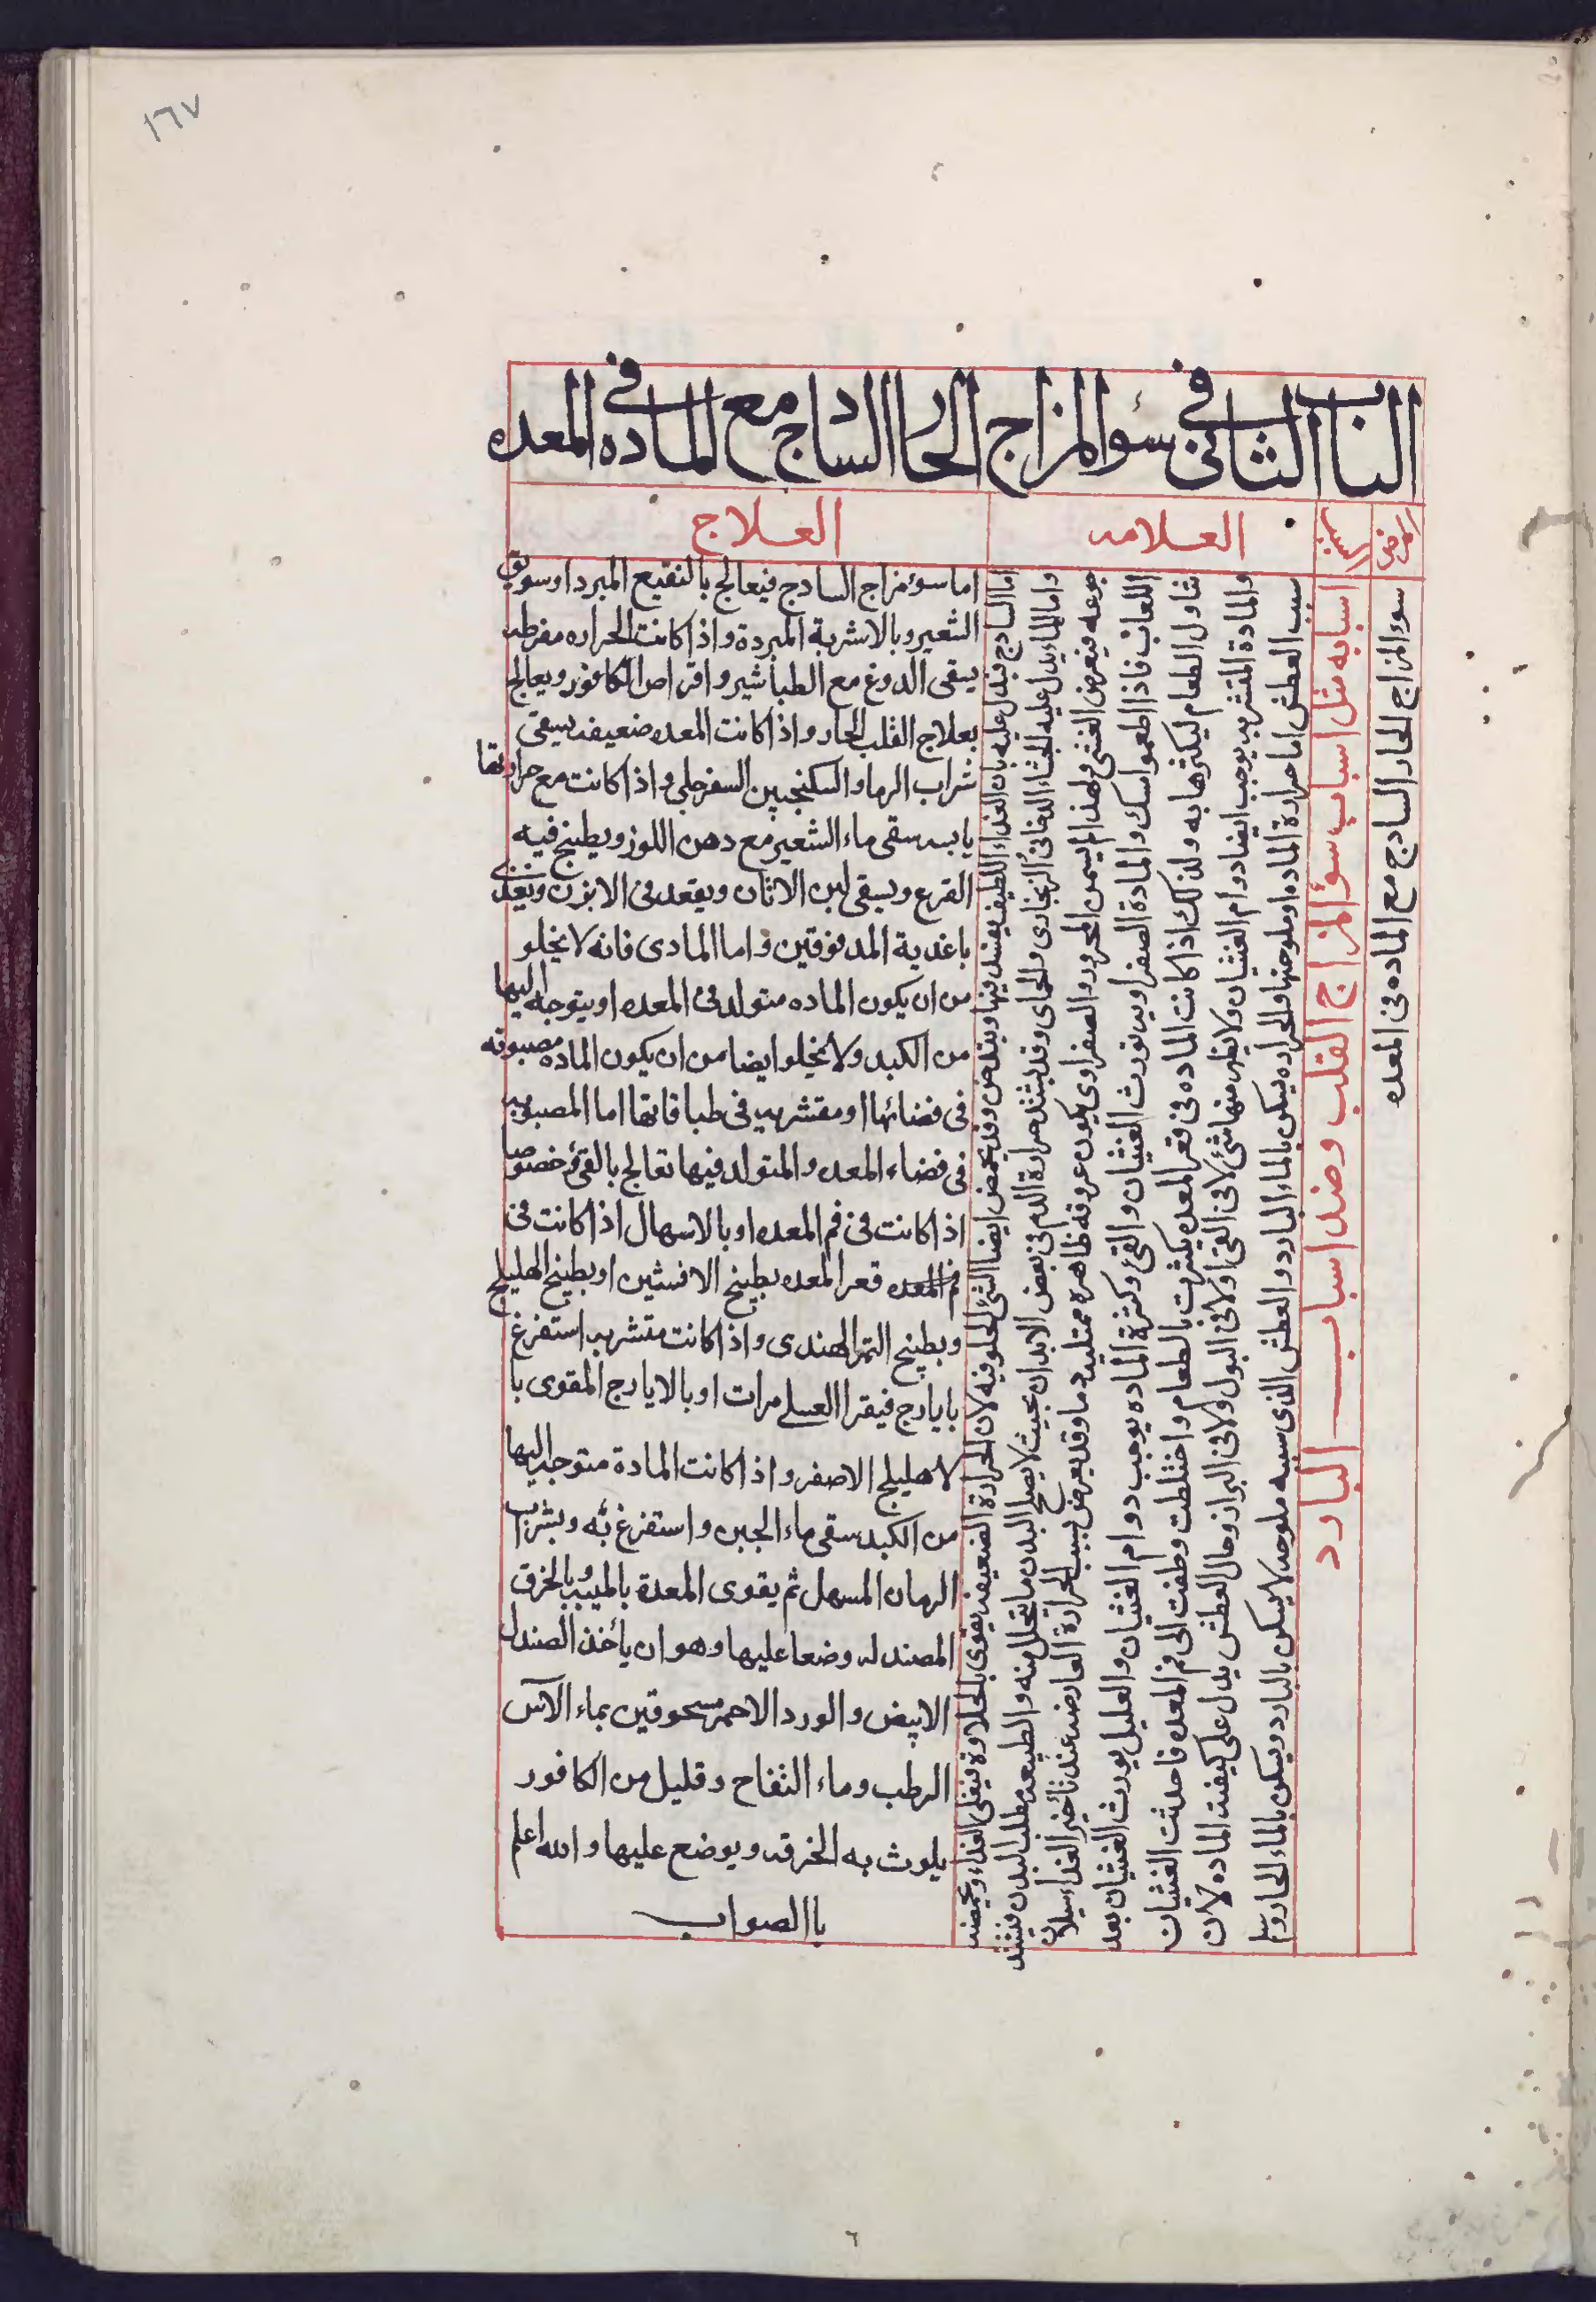 ١٦٧
الباب الثانى فى سؤ المزاج الحار الساداج مع الماده فى المعده
المرض
السبب
العلامه
العلاج
سوء المزاج الحار السادج مع الماده فى المعده
اسبابه مثل اسباب سؤ المزاج القلب وضد اسباب البارد
اما السادج فيدل عليه بان الغذاء اللطيف يفسد فيها ويتدخن وقد يحمض ايضا الشئ الحلو فيه لان الحرارة الضعيفه تقوى بالحلاوة فيغلى الغذاء ويحمضه
واما الماء يدل عليه الجشاء الدخانى الزنجارى والحماى وقد يشتد حرارة الدم فى بعض الابدان بحيث لا يصلح البدن ما يتحلل منه والطبيعه مطلب البدن فيشتد
جوعه فيعرض الغشى ولهذا لم يسمن المحرور والصفراوى يكون عروقه ظاهره ممتليه دما وقد يعرض بسبب الحرارة العارضه عند تأخير الغذاء سيلان
اللعاب فاذا اطعموا سك والمادة الصفراويه تورث الغثيان والقئ وكثرة الماده يوجب دوام الغثيان والقليل يورث الغثيان بعد
تناول الطعام ليكثرها به ولذلك اذا كانت الماده فى قعر المعده يكثرت بالطعام واختلطت وطفت الى فم المعده فاحدثت الغثيان
والمادة المتشربه يوجب ايضا دوام الغثيان ولا يظهر منها شئ لا فى القئ ولا فى البول ولا فى البراز وحال العطش يدل على كيفيت الماده لان
سبب العطش اما حرارة الماده او ملوحتها والحراره يسكن بالماء البارد والعطش الذى سببه ملوحه لا يسكن بالبارد ويسكن بالماء الحار
اما سوء مزاج السادج فيعالج بالنقيع المبرد او سويق
الشعير وبالاشربة المبردة واذا كانت الحراره مفرطه
يسقى الدوغ مع الطباشير واقراص الكافور ويعالج
بعلاج القلب الحار واذا كانت المعده ضعيفه يسقى
شراب الرما والسكنجبين السفرجلى واذا كانت مع حرارتها
يابسه سقى ماء الشعير مع دهن اللوز ويطبخ فيه
القرع ويسقى لبن الاتان ويقعد فى الابزن ويغذى
باغدية المدقوقين واما المادى فانه لا يخلو
من ان يكون الماده متولد فى المعده او يتوجه اليها
من الكبد ولا يخلو ايضا من ان يكون الماده مصبوبه
فى فضائها او متشربه فى طباقاتها اما المصبوبه
فى فضاء المعده والمتولد فيها تعالج بالقئ خصوصا
اذا كانت فى فم المعده او بالاسهال اذا كانت فى
فم المعده قعر المعده بطبيخ الافسنتين او بطبيخ الهليلج
وبطبيخ التمر الهندى واذا كانت متشربه استفرغ
بايارج فيقرا العسلى مرات او بالايارج المقوى با
لاهليلج الاصفر واذا كانت المادة متوجه اليها
من الكبد سقى ماء الجبن واستفرغ به وبشراب
الرمان المسهل ثم يقوى المعدة بالميبه وبالخرق
المصندله وضعا عليها وهو ان يأخذ الصندل
الابيض والورد الاحمر مسحوقين بماء الآس
الرطب وماء التفاح وقليل من الكافور
يلوث به الخرقه ويوضع عليها والله اعلم
باالصواب
٦